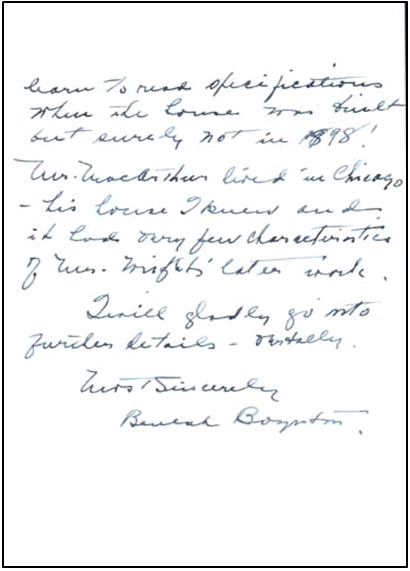 learn to read specifications
when the house was built
but surely not in 1898!
Mr. MacArthur lived in Chicago
- his house I knew and
it had very few characteristics
of Mr. Wright's later work.
I will gladly go into
further details - verbally.
Most Sincerely
Beulah Boynton.